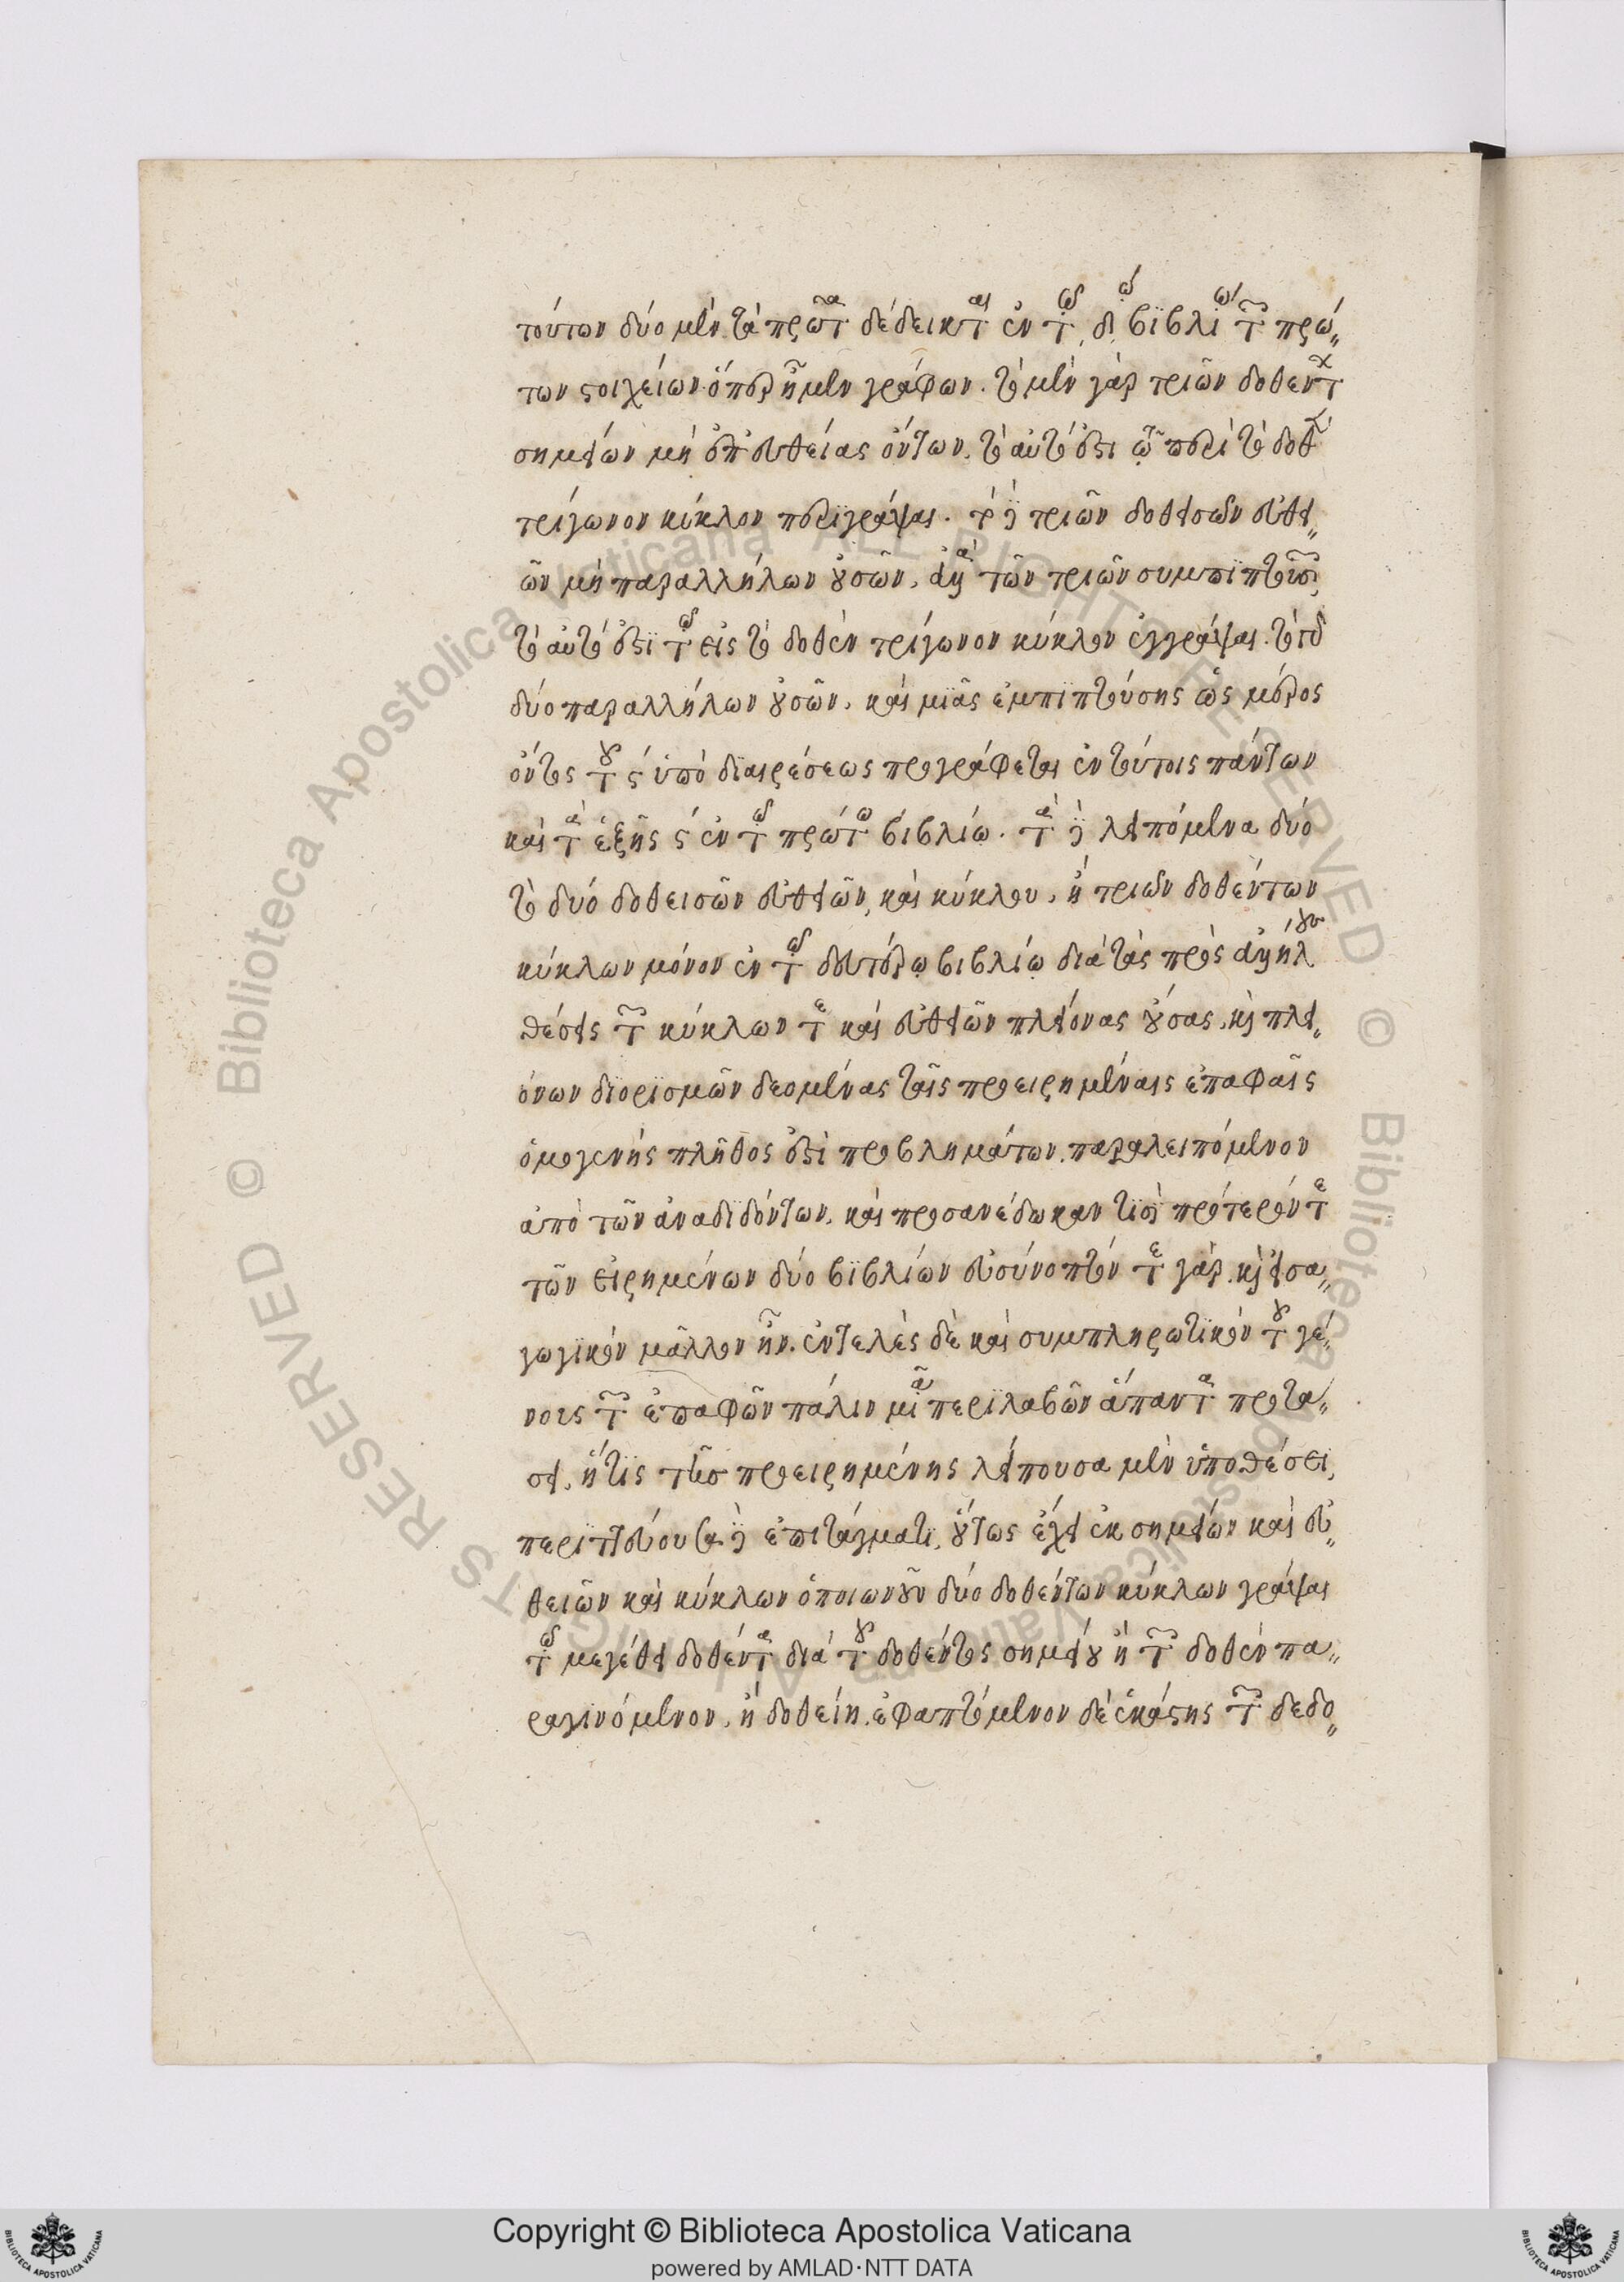 τούτων δύο μὲν τὰ πρῶτα δέδεικται ἐν τῷ δῳ βιβλίῳ τῶν πρώ„
των στοιχείων ὅπερ ἦ μὲν γράφων. τὸ μὲν γὰρ τριῶν δοθέντων
σημείων μὴ ἐπ' εὐθείας ὄντων. τὸ αὐτό ἐστι τῷ περὶ τὸ δοθὲν
τρίγωνον κύκλον περιγράψαι. τὸ δὲ τριῶν δοθεισῶν εὐθει„
ῶν μὴ παραλλήλων οὐσῶν, ἀλλὰ τῶν τριῶν συμπιπτουσῶν
τὸ αὐτό ἐστι τῷ εἰς τὸ δοθὲν τρίγωνον κύκλον ἐγγράψαι. τὸ δὲ
δύο παραλλήλων οὐσῶν, καὶ μιᾶς ἐμπιπτούσης ὡς μέρος
ὄντος τοῦ ς ὑπὸ διαιρέσεως προγράφεται ἐν τούτοις πάντων
καὶ τὰ ἑξῆς ς ἐν τῷ πρώτῳ βιβλίῳ. τὰ δὲ λειπόμενα δύο
τὸ δύο δοθεισῶν εὐθειῶν, καὶ κύκλου, ἢ τριῶν δοθέντων
κύκλων μόνον ἐν τῷ δευτέρῳ βιβλίῳ διὰ τὰς πρὸς ἀλλήλους
θέσεις τῶν κύκλων τε καὶ εὐθειῶν πλείονας οὔσας, καὶ πλει„
όνων διορισμῶν δεομένας ταῖς προειρημέναις ἐπαφαῖς
ὁμογενὴς πλῆθος ἐστὶ προβλημάτων παραλειπόμενον
ἀπὸ τῶν ἀναδιδόντων, καὶ προσανέδωκαν τισὶ πρότερόν τε
τῶν εἰρημένων δύο βιβλίων εὐσύνοπτόν τε γὰρ καὶ εἰσα„
γωγικὸν μᾶλλον ἦν. ἐντελὲς δὲ καὶ συμπληρωτικὸν τοῦ γέ„
νους τῶν ἐπαφῶν πάλιν μιᾷ περιλαβῶν ἅπαντα προτά„
σει, ἥτις τῆς προειρημένης λείπουσα μὲν ὑποθέσει,
περιττεύουσα δὲ ἐπιτάγματι, οὕτως ἔχει ἐκ σημείων καὶ εὐ„
θειῶν καὶ κύκλων ὁποιωνοῦν δύο δοθέντων κύκλων γράψαι
τῷ μεγέθει δοθέντα διὰ τοῦ δοθέντος σημείου ἢ τῶν δοθὲν πα„
ραγινόμενον, ἢ δοθείη, ἐφαπτόμενον δὲ ἑκάστης τῶν δεδο„
Copyright © Biblioteca Apostolica Vaticana
powered by AMLAD·NTT DATA